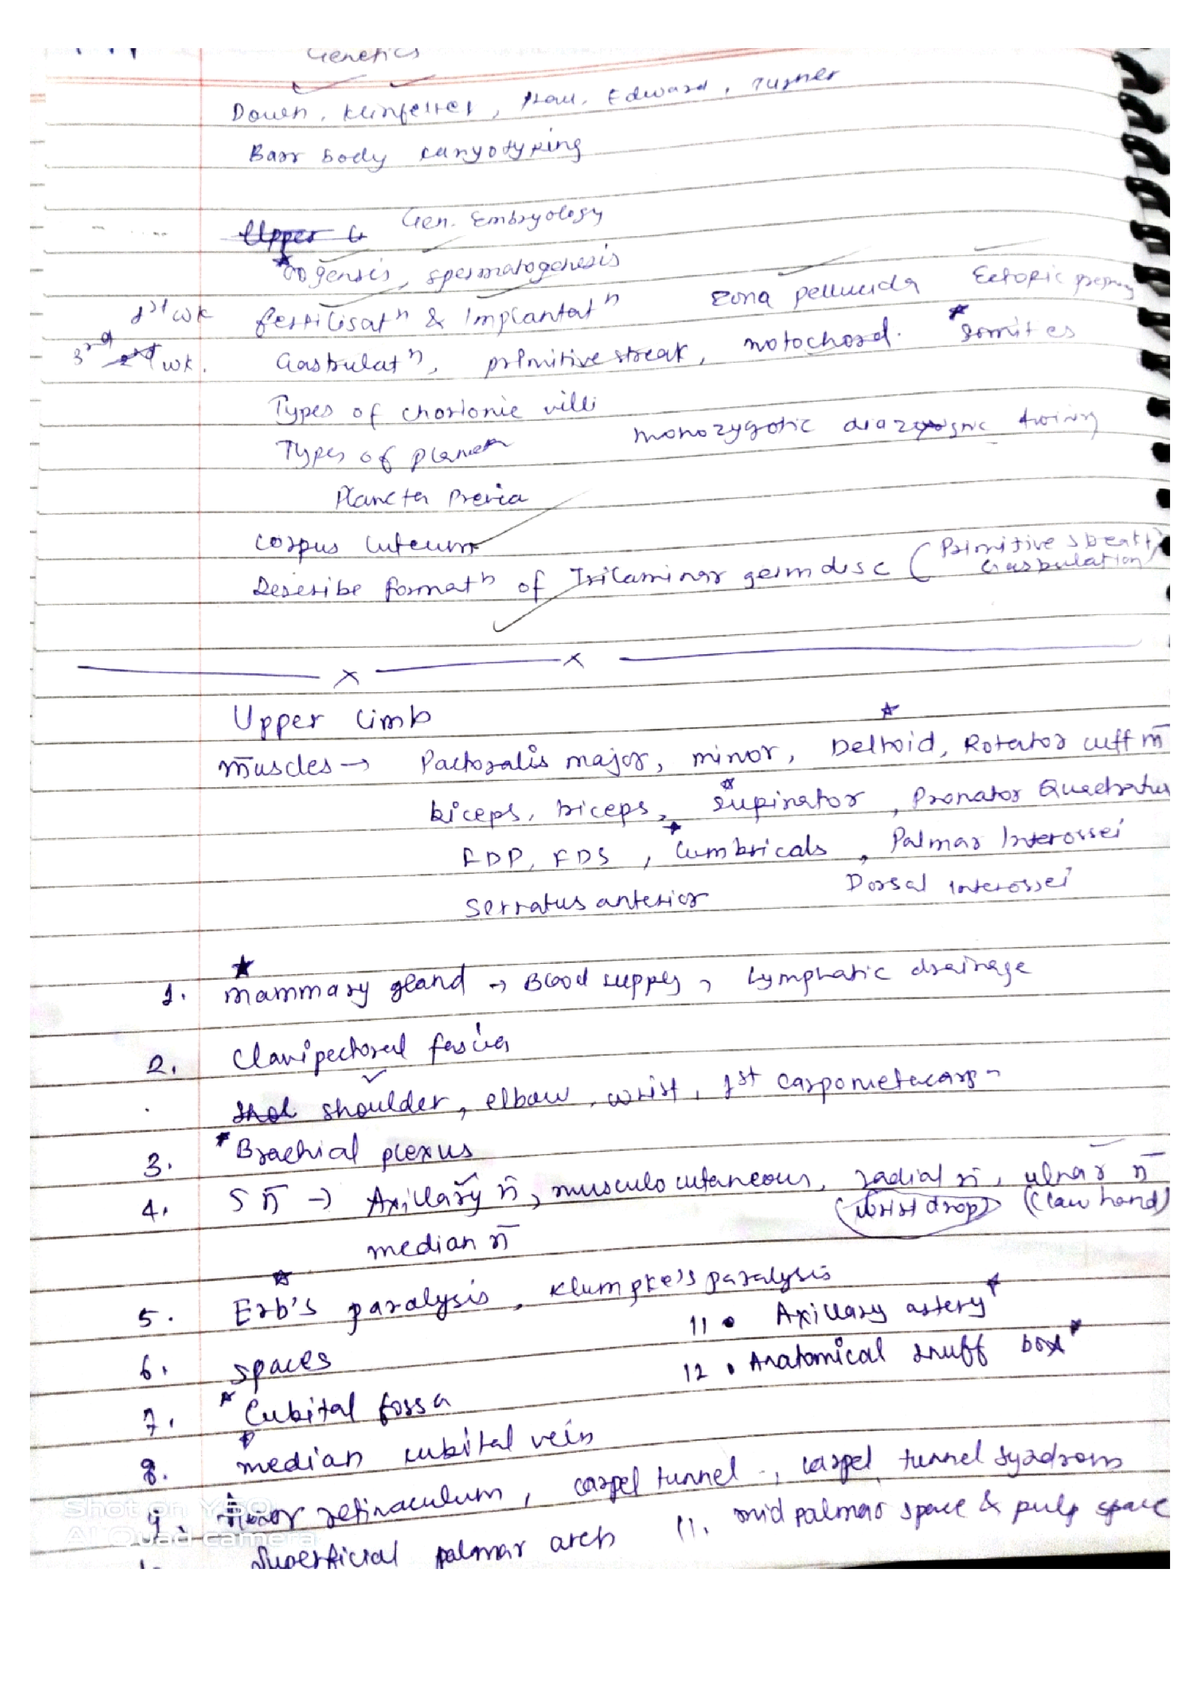 Genetics
Down, Klinfelter, Edward, Turner
Barr body karyotyping
Upper Gen. Embryology
oogensis, spermatogenesis
1st wk fertilisatⁿ & Implantatⁿ Zona pellucida Ectopic
3rd wk. Gastrulatⁿ, primitive streak, notochord. somites
Types of chorionic villi
Types of monozygotic twins
Plancta Previa
corpus luteum
Describe formatⁿ of Trilaminar germ disc (Primitive
Upper limb
muscles → Pactoralis major, minor, Deltoid, Rotator cuff m̄
biceps, triceps, supinator, Pronator Quadratus
FDP, FDS, Lumbricals, Palmar Interossei
Serratus anterior Dorsal Interossei
1. mammary gland → Blood supply, Lymphatic drainage
2. Clavipectoral fascia
shoulder, elbow, wrist, 1st carpometacarp
3. Brachial plexus
4. 5 n̄ → Axillary n̄, musculocutaneous, radial n̄, ulnar n̄
(wrist drop) (Claw hand)
median n̄
5. Erb's paralysis, Klumpke's paralysis
11. Axillary artery
6. spaces
12. Anatomical snuff box
7. Cubital fossa
8. median cubital vein
9. retinaculum, carpel tunnel, carpel tunnel syndrom
Superficial palmar arch 11. mid palmar space & pulp space
Shot on Y50
AI Quad camera